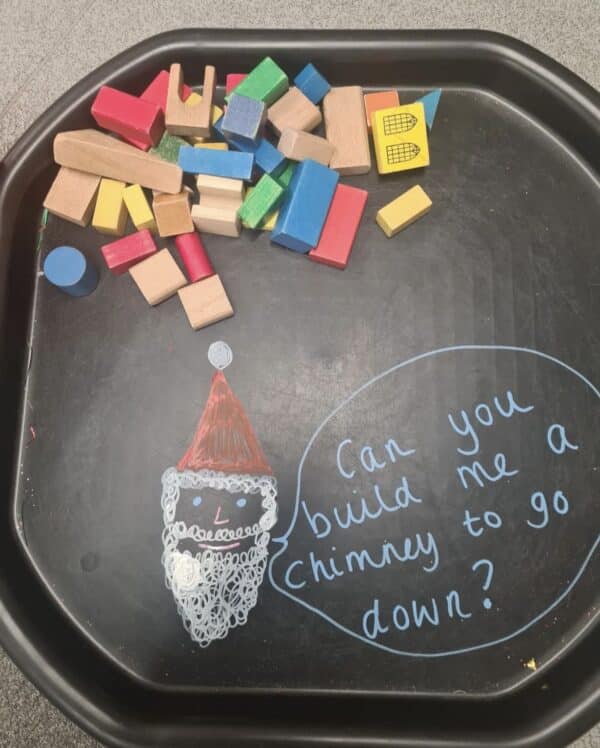 Can you
build me a
chimney to go
down?